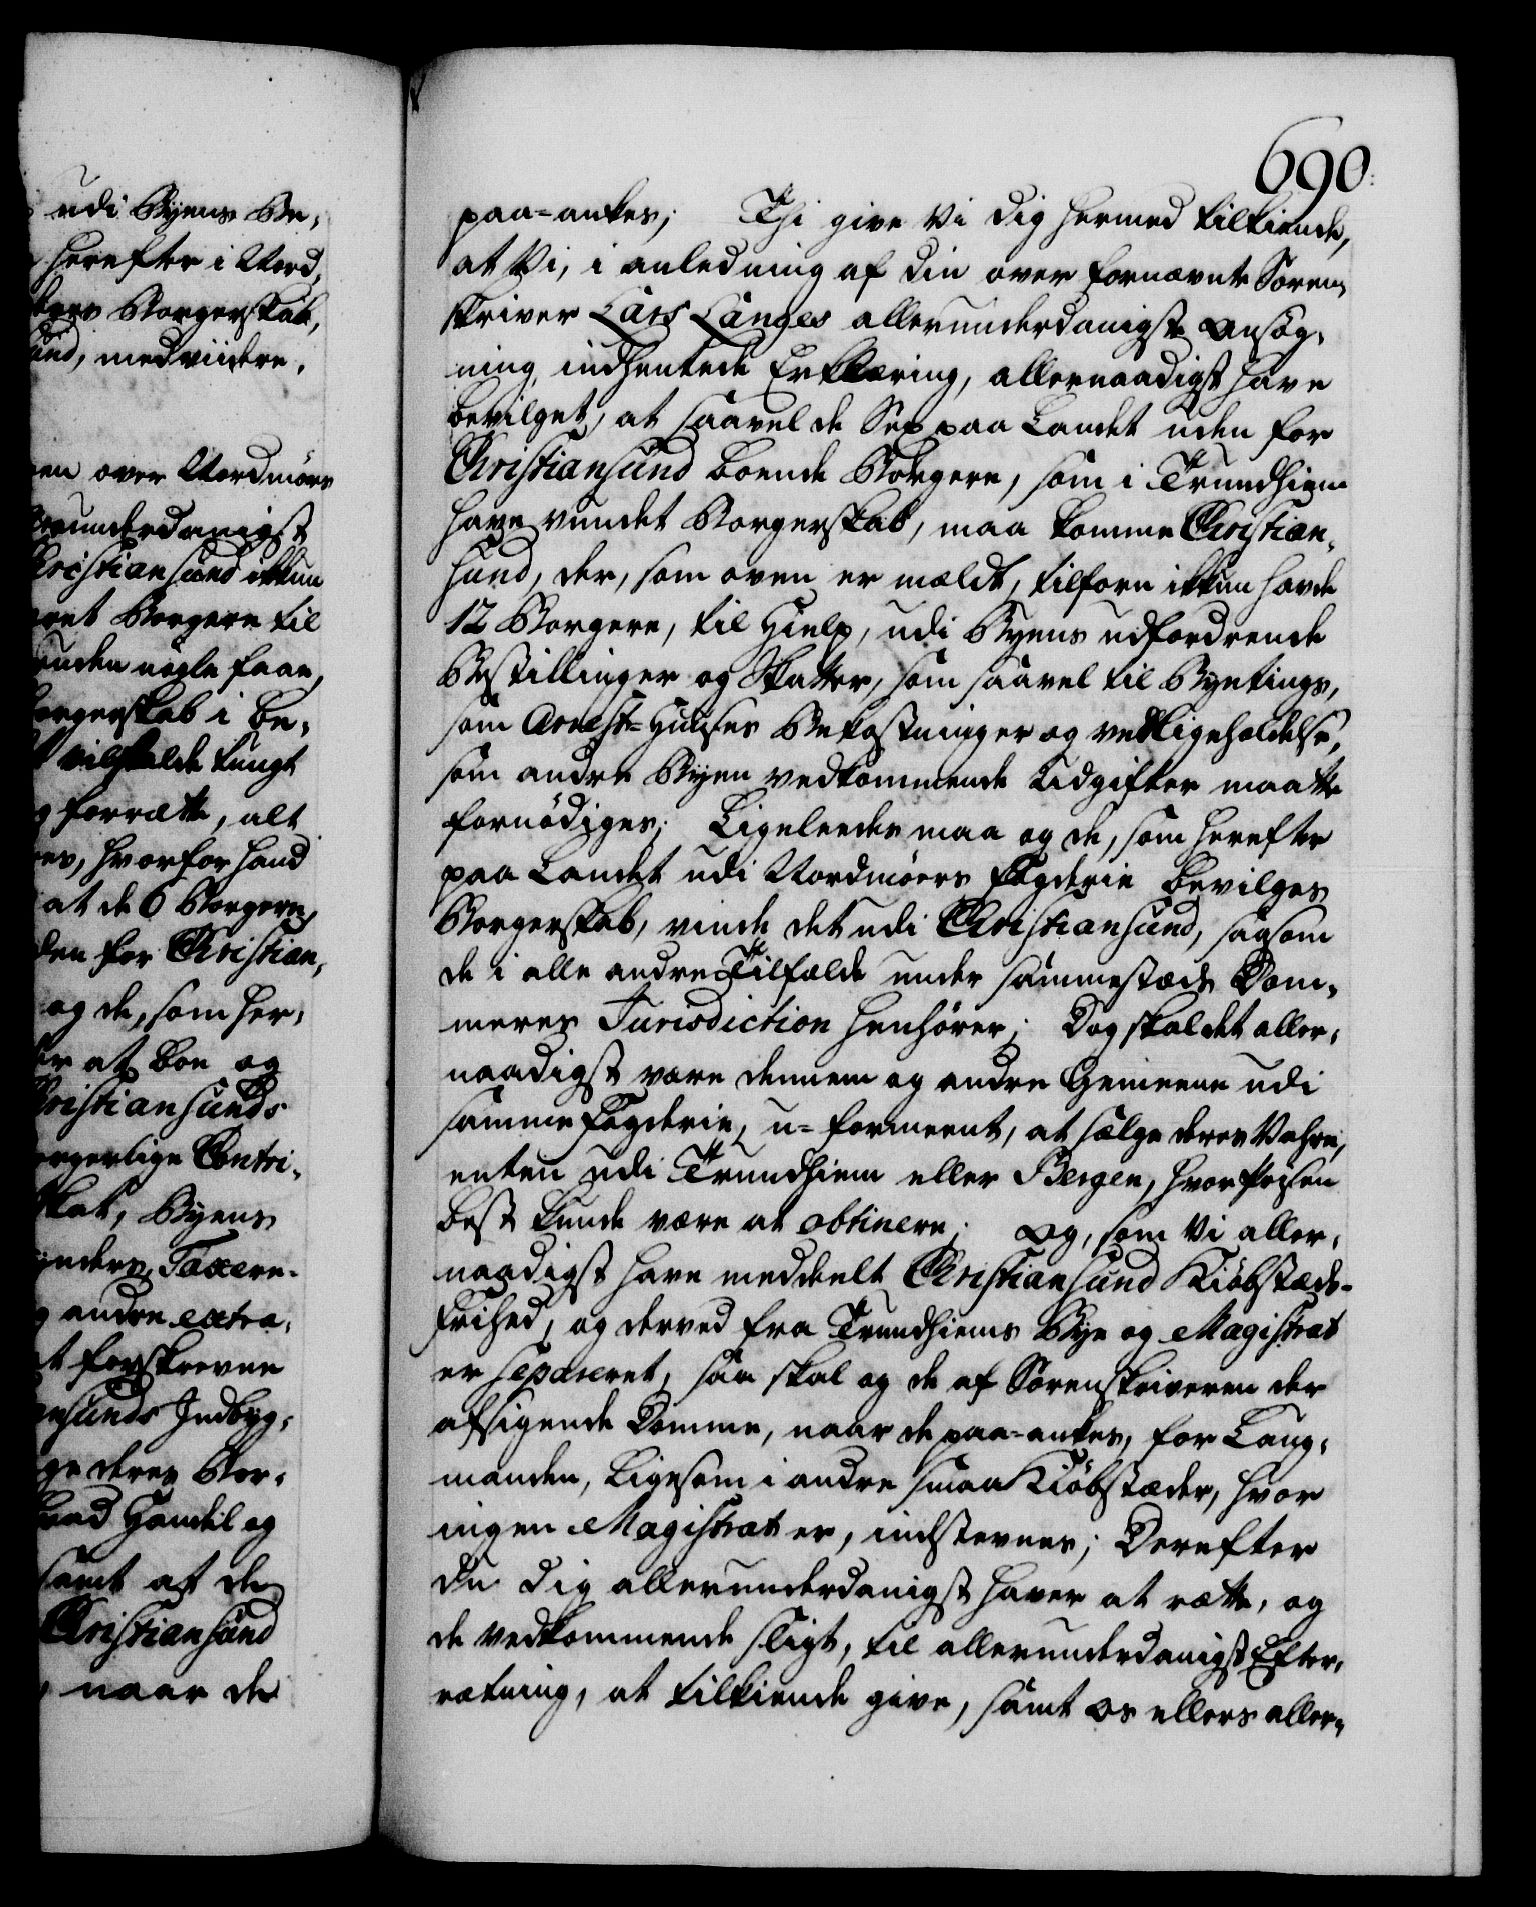 udi Byens Be,
herefter i Nord,
Borgerskab,
med viidere.
over Nordmörs
Christiansund ikkun
Borgere til
uden nogle faae,
i be,
vilskulde tungt
forrætte, alt
hvorfor hand
at de 6 Borgere,
den for Christian,
og de, som her,
at boe og
Christiansunds
Contri,
Byens
Taxere-
andre extra,
forskrevne
Indbyg,
deres Bor,
Handel og
samt at de
Christiansund
naar de
690.
paa=ankes; Thi give Vi dig hermed tilkiende,
at Vi, i anledning af din over fornævnte Soren,
skriver Lars Langes allerunderdanigste ansög,
ning indhentede Erklæring, allernaadigst have
bevilget, at saavel de Sex paa Landet uden for
Christiansund boende Borgere, som i Trundhiem
have vundet Borgerskab, maa komme Christian,
sund, der, som oven er meldt, tilforn ikkun havde
12 Borgere, til Hielp, udi Byens udfordrende
Bestillinger og Skatter, som saavel til Byetings,
som Arrest=Huuses Bekostninger og vedligeholdelse,
som andre Byen vedkommende Udgifter maatte
fornödiges; Ligeleedes maa og de, som herefter
paa Landet udi Nordmöers Fogderie bevilges
Borgerskab, vinde det udi Christiansund, saasom
de i alle andre Tilfælde under sammestæds Dom,
meres Jurisdiction henhörer; Dog skal det aller,
naadigst være dennem og andre Gemeene udi
samme Fogderie, u=formeent, at sælge deres Vahre,
enten udi Trundhiem eller Bergen, hvor Prisen
best kunde være at obtinere; Og, som Vi aller,
naadigst have meddeelt Christiansund Kiöbstæds-
Frihed, og derved fra Trundhiems Bye og Magistrat
er separeret, saa skal og de af Sorenskriveren der
afsigende Domme, naar de paa=ankes, for Laug,
manden, ligesom i andre smaa Kiöbstæder, hvor
ingen Magistrat er, indstevnes; Derefter
du dig allerunderdanigst haver at rætte, og
de vedkommende sligt, til allerunderdanigst Efter,
rætning, at tilkiende give, samt os ellers aller,